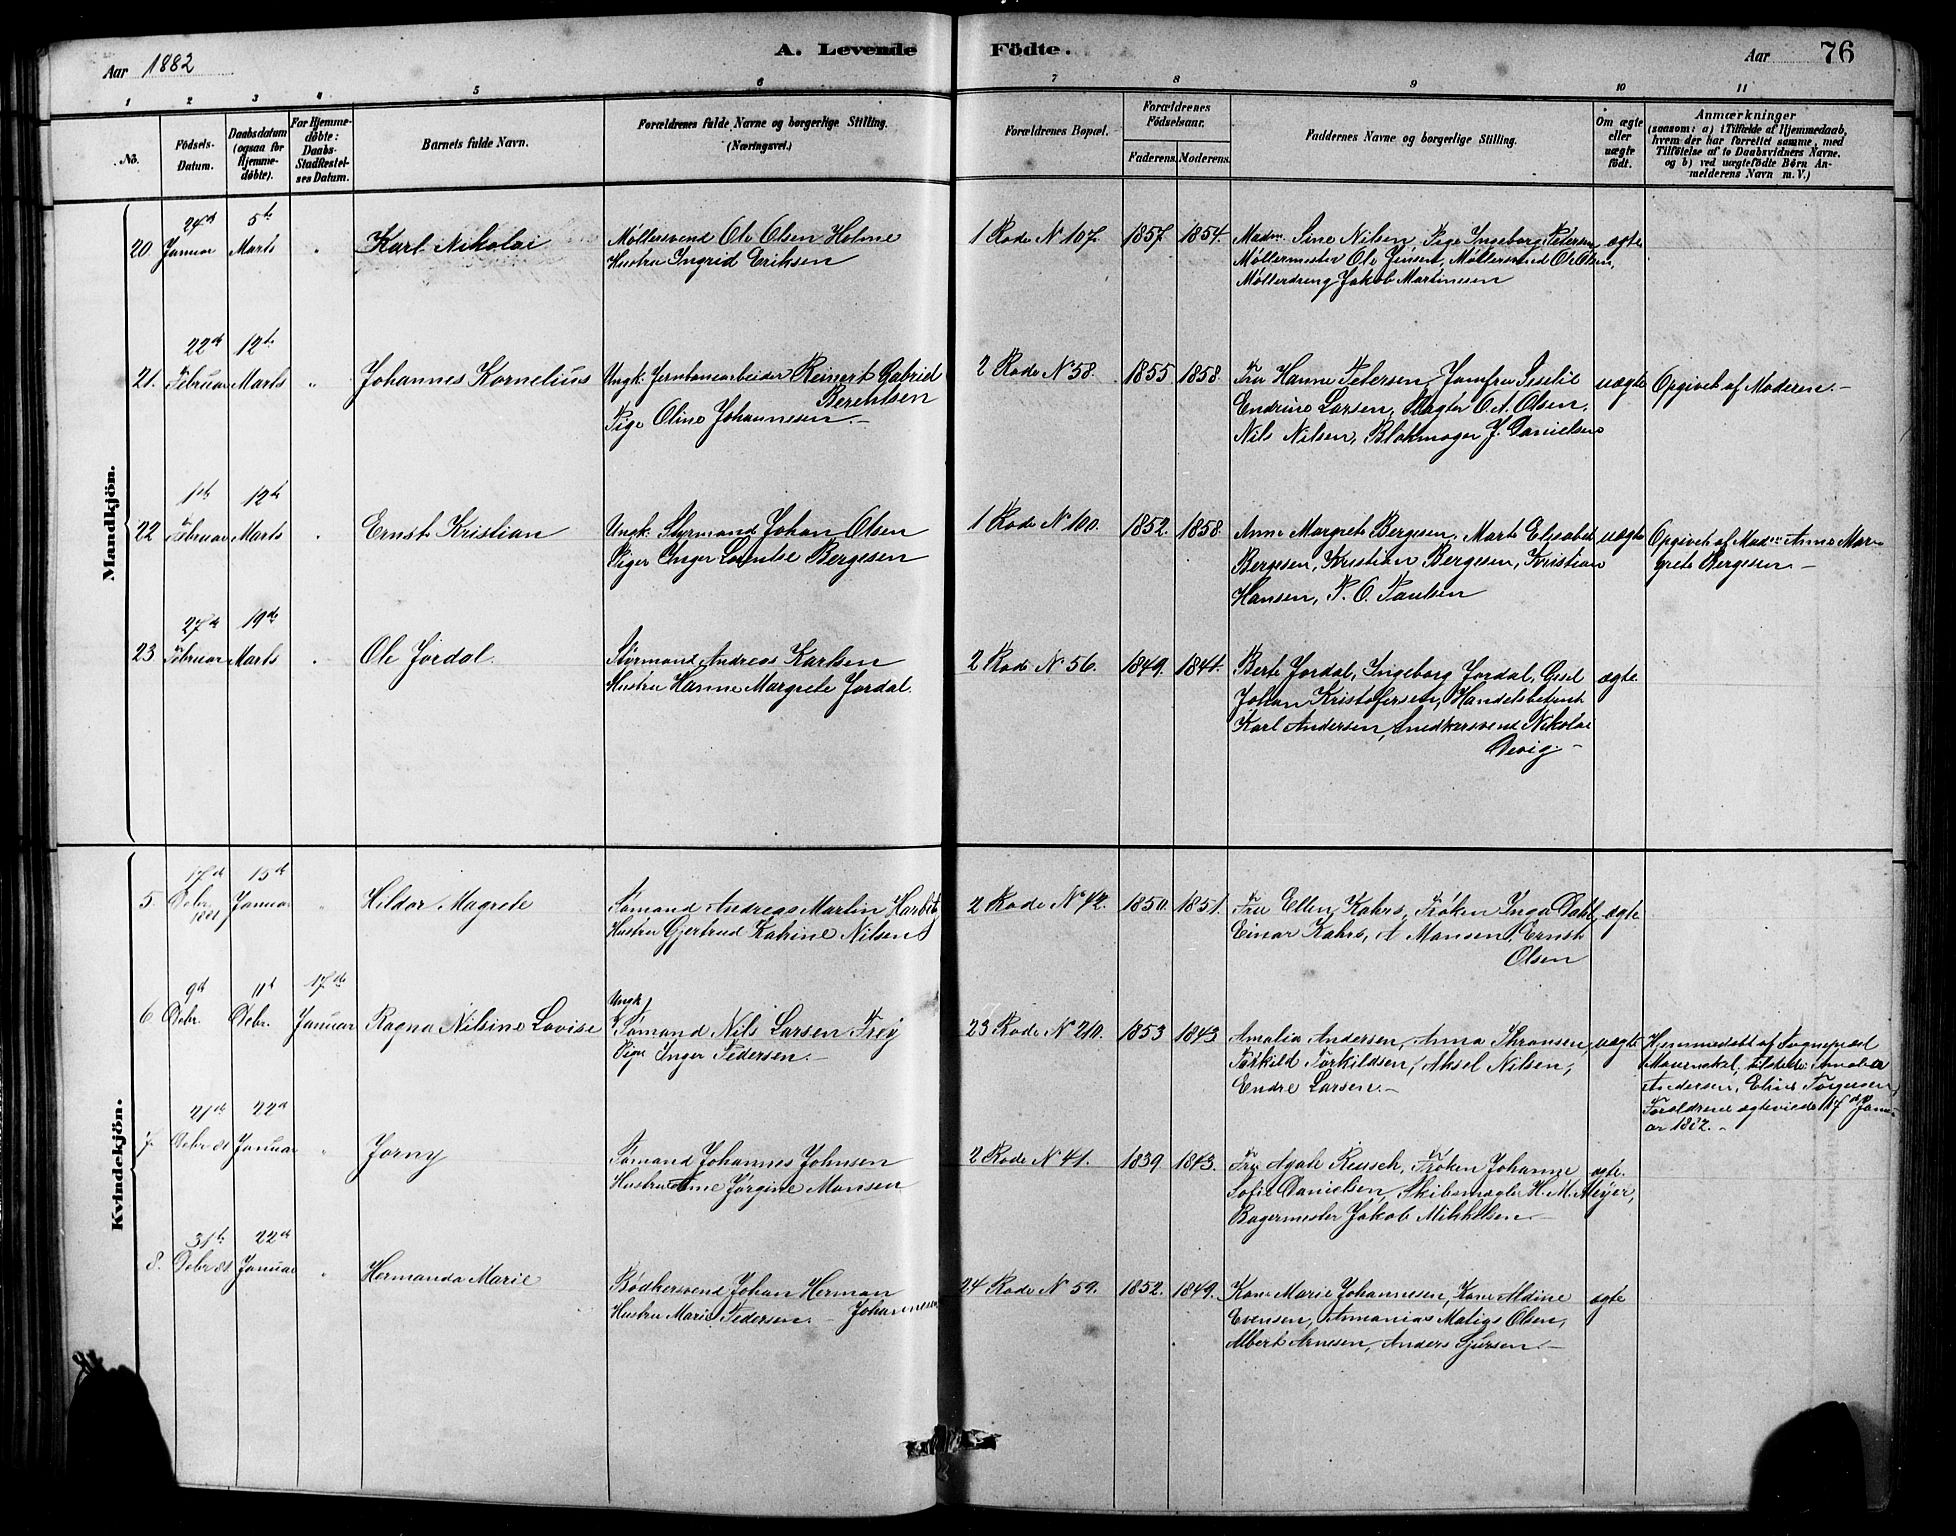 Aar 1882
A. Levende Födte.
Aar 76
1 2 3 4 5 6 7 8 9 10 11
No.
Födsels-Datum.
Daabsdatum (ogsaa for Hjemme-döbte).
For Hjemme-döbte: Daabs-Stadfæstel-ses Datum.
Barnets fulde Navn.
Forældrenes fulde Navne og borgerlige Stilling.
(Næringsvei.)
Forældrenes Bopæl.
Forældrenes Födselsaar.
Faderens. Moderens.
Faddernes Navne og borgerlige Stilling.
Om ægte eller uægte födt.
Anmærkninger
(saasom: a) i Tilfælde af Hjemmedaab,
hvem der har forrettet samme, med
Tilföielse af to Daabsvidners Navne.
og b) ved uægtefödte Börn An-
melderens Navn m. V.)
Mandkjön.
20 24de Januar 5te Marts " Karl Nikolai
Møllersvend Ole Olsen Holme
Hustru Ingrid Eriksen
1 Rode N 107. 1857. 1854.
Madm. Sine Nilsen, Pige Ingeborg Petersen
Møllermester Ole Jensen, Møllersvend Ole Olsen,
Møllerdreng Jakob Martinesen
ægte
21. 22de Februar 12te Marts " Johannes Kornelius
Ungk. Jernbanearbeider Reinert Gabriel
Berentsen
Pige Oline Johannesen.-
2 Rode N 58. 1855 1858.
Fru Hanne Petersen, Jomfru Siselie
Endrine Larsen, Slagter O. A. Olsen,
Nils Nilsen, Blokmager J. Danielsen
uægte
Opgivet af Moderen.-
22 1ste Februar 12te Marts " Ernst Kristian
Ungk. Styrmand Johan Olsen
Piger Inger Lorentse Bergesen
1 Rode N 100. 1852. 1858.
Anne Margrete Bergesen, Marte Elisabet
Bergesen, Kristian Bergesen, Kristian
Hansen, P. O. Paulsen
uægte
Opgivet af Madm Anne Mar-
grete Bergesen.-
23 27de Februar 19de Marts " Ole Jordal.
Styrmand Andreas Karlsen
Hustru Hanne Margrete Jordal.
2 Rode N 56. 1849. 1841.
Berte Jordal, Ingeborg Jordal, Gisel
Johan Kristofersen, Handelsbetjent
Karl Andersen, Snedkersvend Nikolai
Devig.-
ægte.
Kvindekjön.
5. 17de Debr. 1881 15de Januar " Hildor Magrete
Sømand Andreas Martin
Hustru Gjertrud Katrine Nilsen
2 Rode No 42. 1850. 1851.
Fru Ellen Kahrs, Frøken Inga Dahl,
Einar Kahrs, A Mansen, Ernst
Olsen
ægte.
6 9de Debr. 11te Debr. 17de Januar Ragna Nilsine Lovise
Ungk.
Sømand Nils Larsen Frøy
Pige Inger Pedersen.-
23 Rode N 210. 1853 1843
Amalia Andersen, Anna Thronsen,
Torkild Torkildsen, Aksel Nilsen,
Endre Larsen.-
uægte
Hjemmedøbt af Sogneprest
tilstede: Amalia
Andersen, Torgersen,
Forældrene ægteviede 17de Janu-
ar 1882.-
7. 21de Debr 81 22de Januar " Jorny
Sømand Johannes Johnsen
Hustru Ane Jørgine Monsen
2 Rode N 41. 1839 1843.
Fru Agate Reusch, Frøken Johanne
Sofie Danielsen, Skibsmægler H. M. Meyer,
Bagermester Jakob Mikkelsen.-
ægte.
8. 31te Debr 81 22de Januar " Hermanda Marie
Bødkersvend Johan Herman
Hustru Marie Pedersen.- Johannesen
24 Rode N 59. 1852. 1849.
Kone Marie Johannesen, Kone Aldine
Evensen, Ananias Matias Olsen,
Albert Arnesen, Anders Sjursen.-
ægte